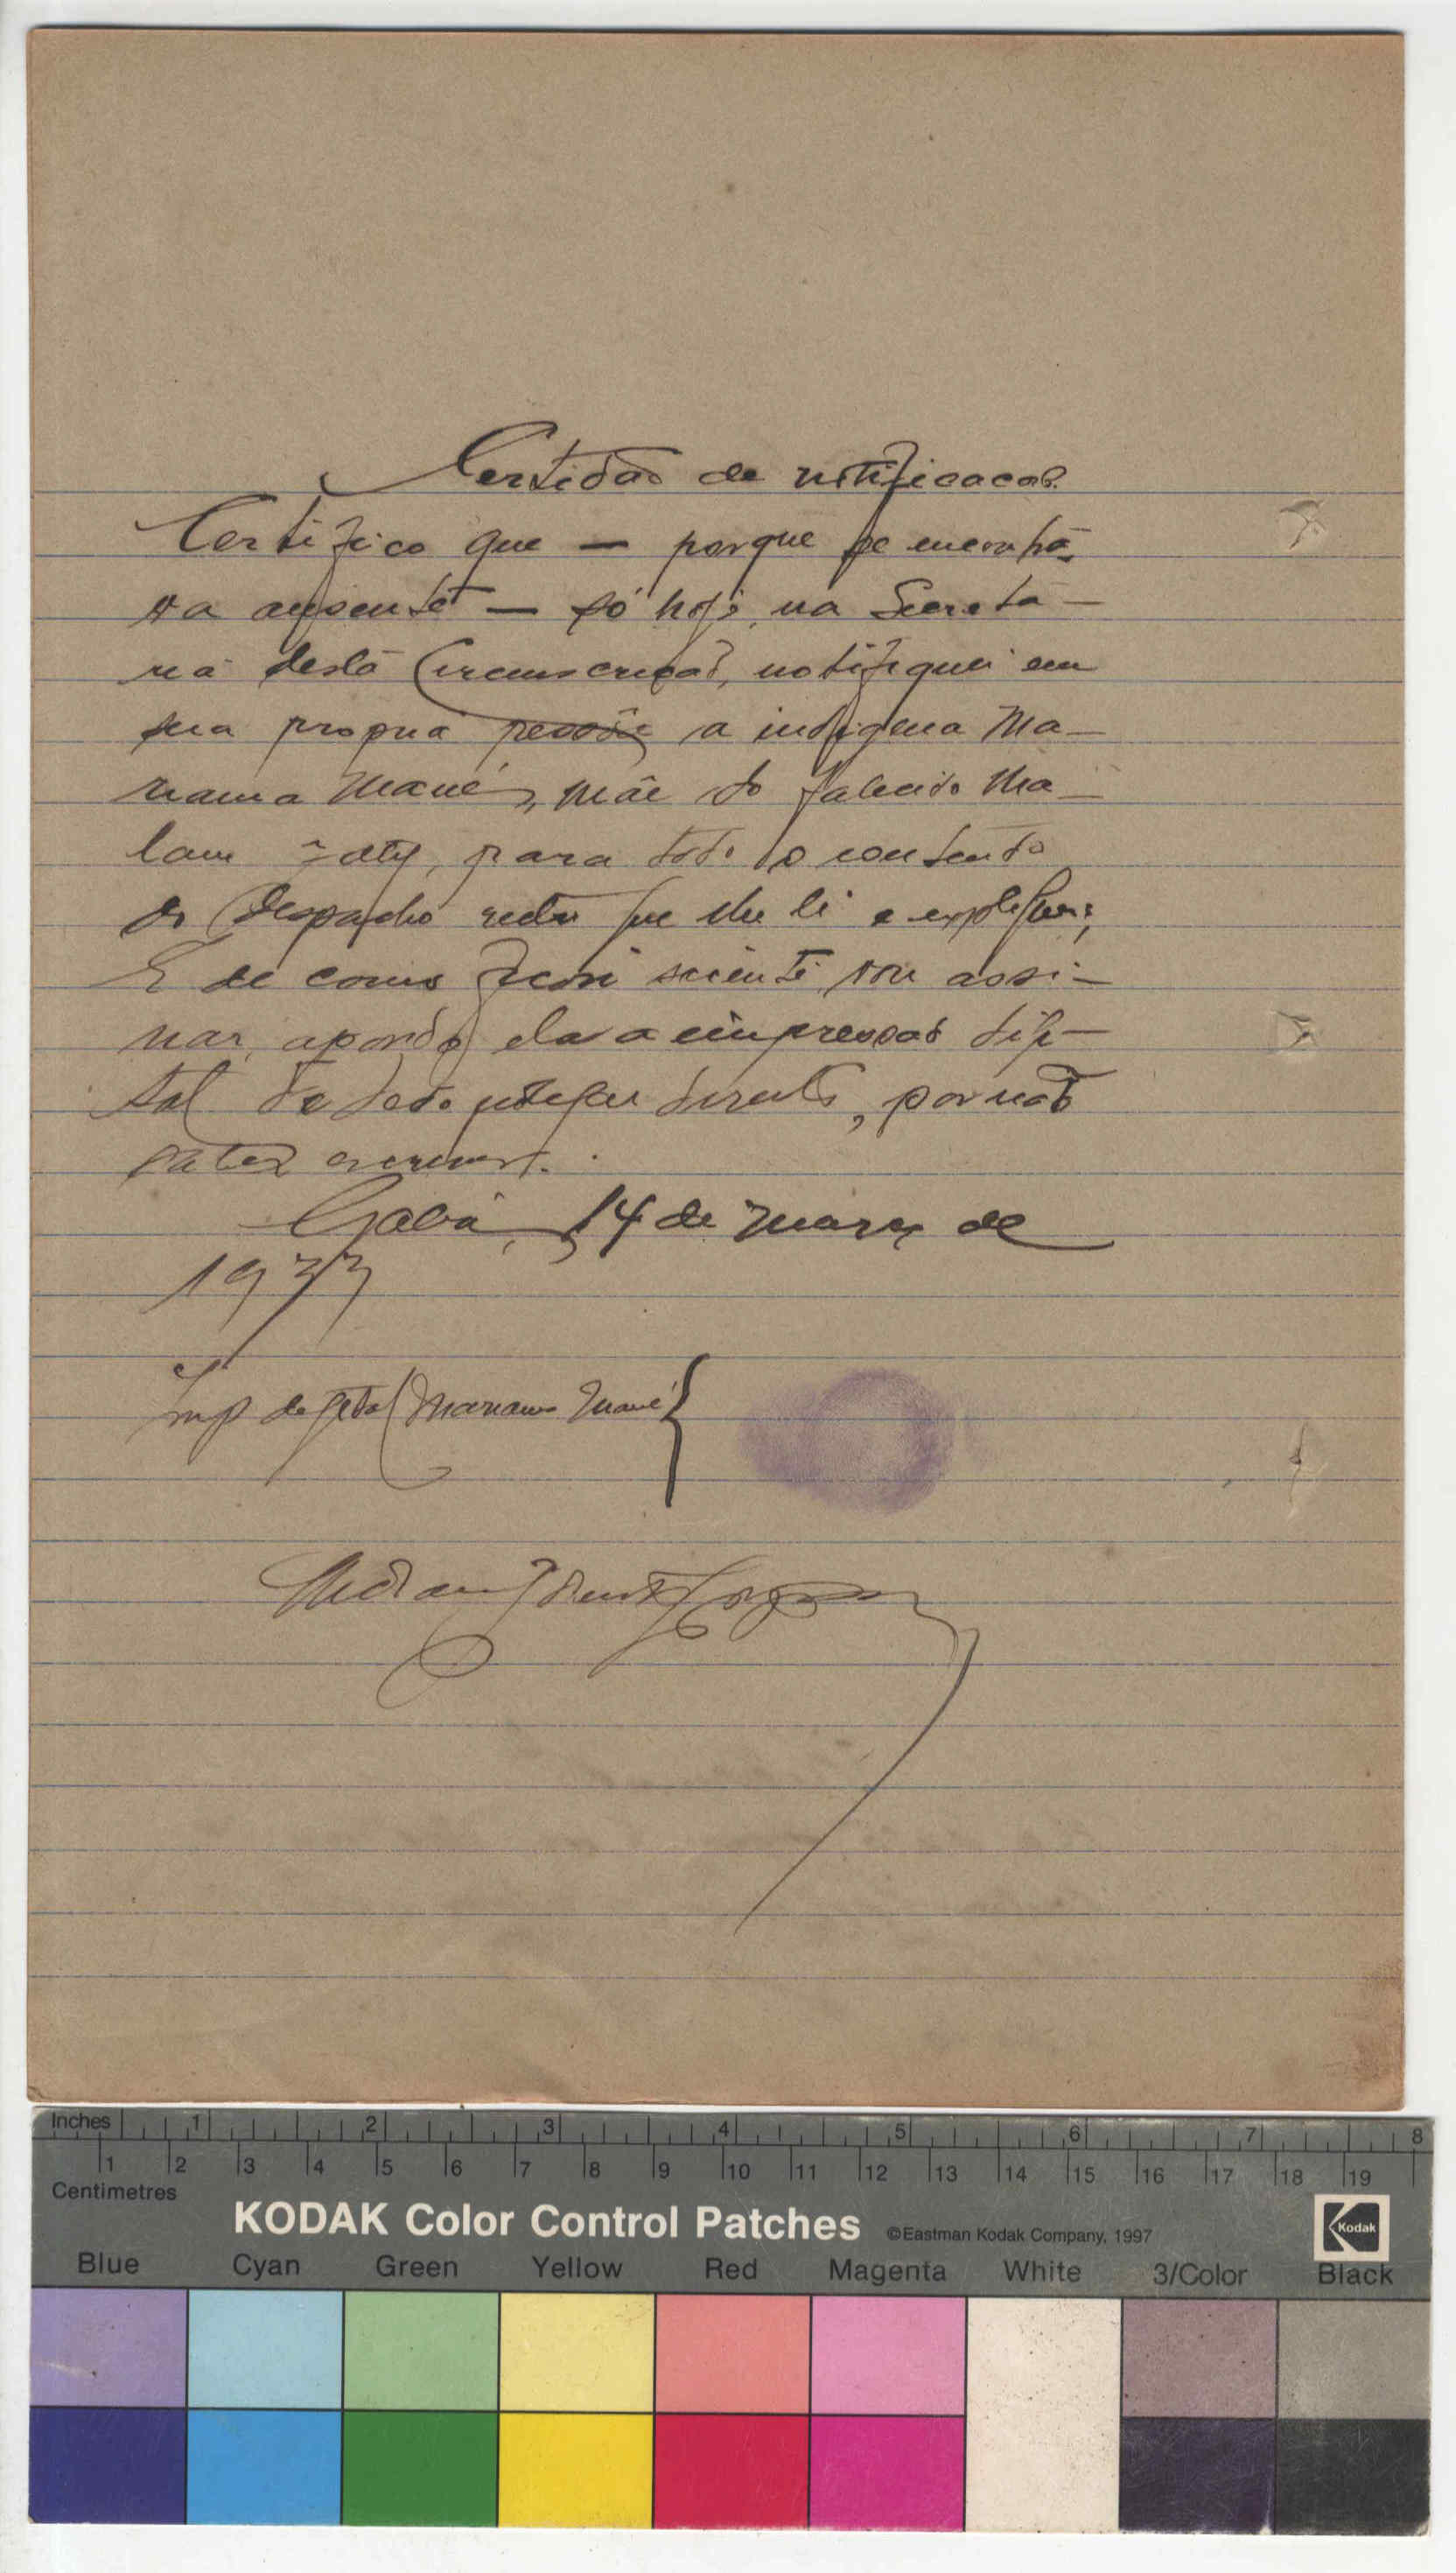 Certidão de notificação
Certifico que — porque se encontra-
va ausente — só hoje, na Secreta-
ria desta Circunscrição, notifiquei em
sua propria pessôa a indigena Ma-
riama Mané, mãe do falecido Ma-
lam Saty, para todo o contendo
do despacho rectro que lhe li e expliquei;
E de como ficou sciente vou assi-
nar, apondo ela a impressão digi-
tal do dedo indicador direito, por não
saber escrever.
Gabú, 14 de Março de
1933
Imp digital Mariama Mané
Inches 1 2 3 4 5 6 7 8
1 2 3 4 5 6 7 8 9 10 11 12 13 14 15 16 17 18 19
Centimetres
KODAK Color Control Patches ©Eastman Kodak Company, 1997 Kodak
Blue Cyan Green Yellow Red Magenta White 3/Color Black